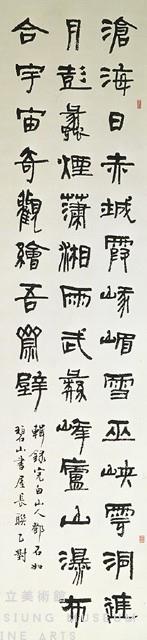 滄海日赤城霞峨嵋雪巫峽雲洞庭
月彭蠡煙瀟湘雨武彝峰廬山瀑布
合宇宙奇觀繪吾齋壁
輯錄完白山人鄧石如
碧山書屋長聯乙對
立美術館
SIUNG MUSEUM
INE ARTS